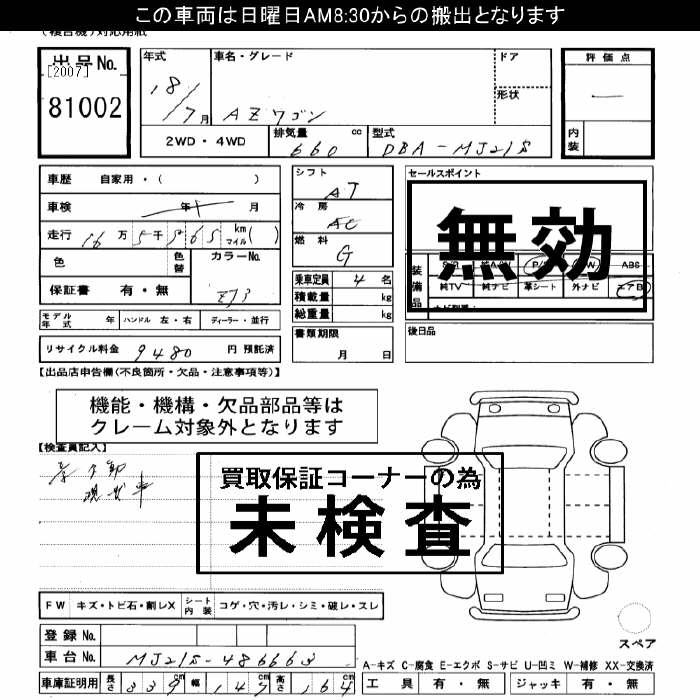 この車両は日曜日AM8:30からの搬出となります
(複合機)対応用紙
出品No.
[2007]
81002
年式
18/7月
車名・グレード
AZワゴン
ドア
形状
2WD・4WD
排気量 660 cc
型式 DBA-MJ21S
評価点
内装
車歴 自家用・( )
車検 年 月
走行 16万5千5865 km マイル( )
色
色替
カラーNo.
ZJ3
保証書 有・無
モデル年式 年 ハンドル 左・右 ディーラー・並行
リサイクル料金 9480 円 預託済
シフト AT
冷房 AC
燃料 G
乗車定員 4 名
積載量 kg
総重量 kg
書類期限
月 日
セールスポイント
無効
装備品
ABS
純TV 純ナビ 革シート 外ナビ エアB
後日品
【出品店申告欄(不良箇所・欠品・注意事項等)】
機能・機構・欠品部品等は
クレーム対象外となります
【検査員記入】
買取保証コーナーの為
未検査
FW キズ・トビ石・割レX シート内装 コゲ・穴・汚レ・シミ・破レ・スレ
登録No.
車台No. MJ21S-486663
車庫証明用 長さ 339cm 幅 147cm 高さ 164cm
スペア
A-キズ C-腐食 E-エクボ S-サビ U-凹ミ W-補修 XX-交換済
工具 有・無 ジャッキ 有・無